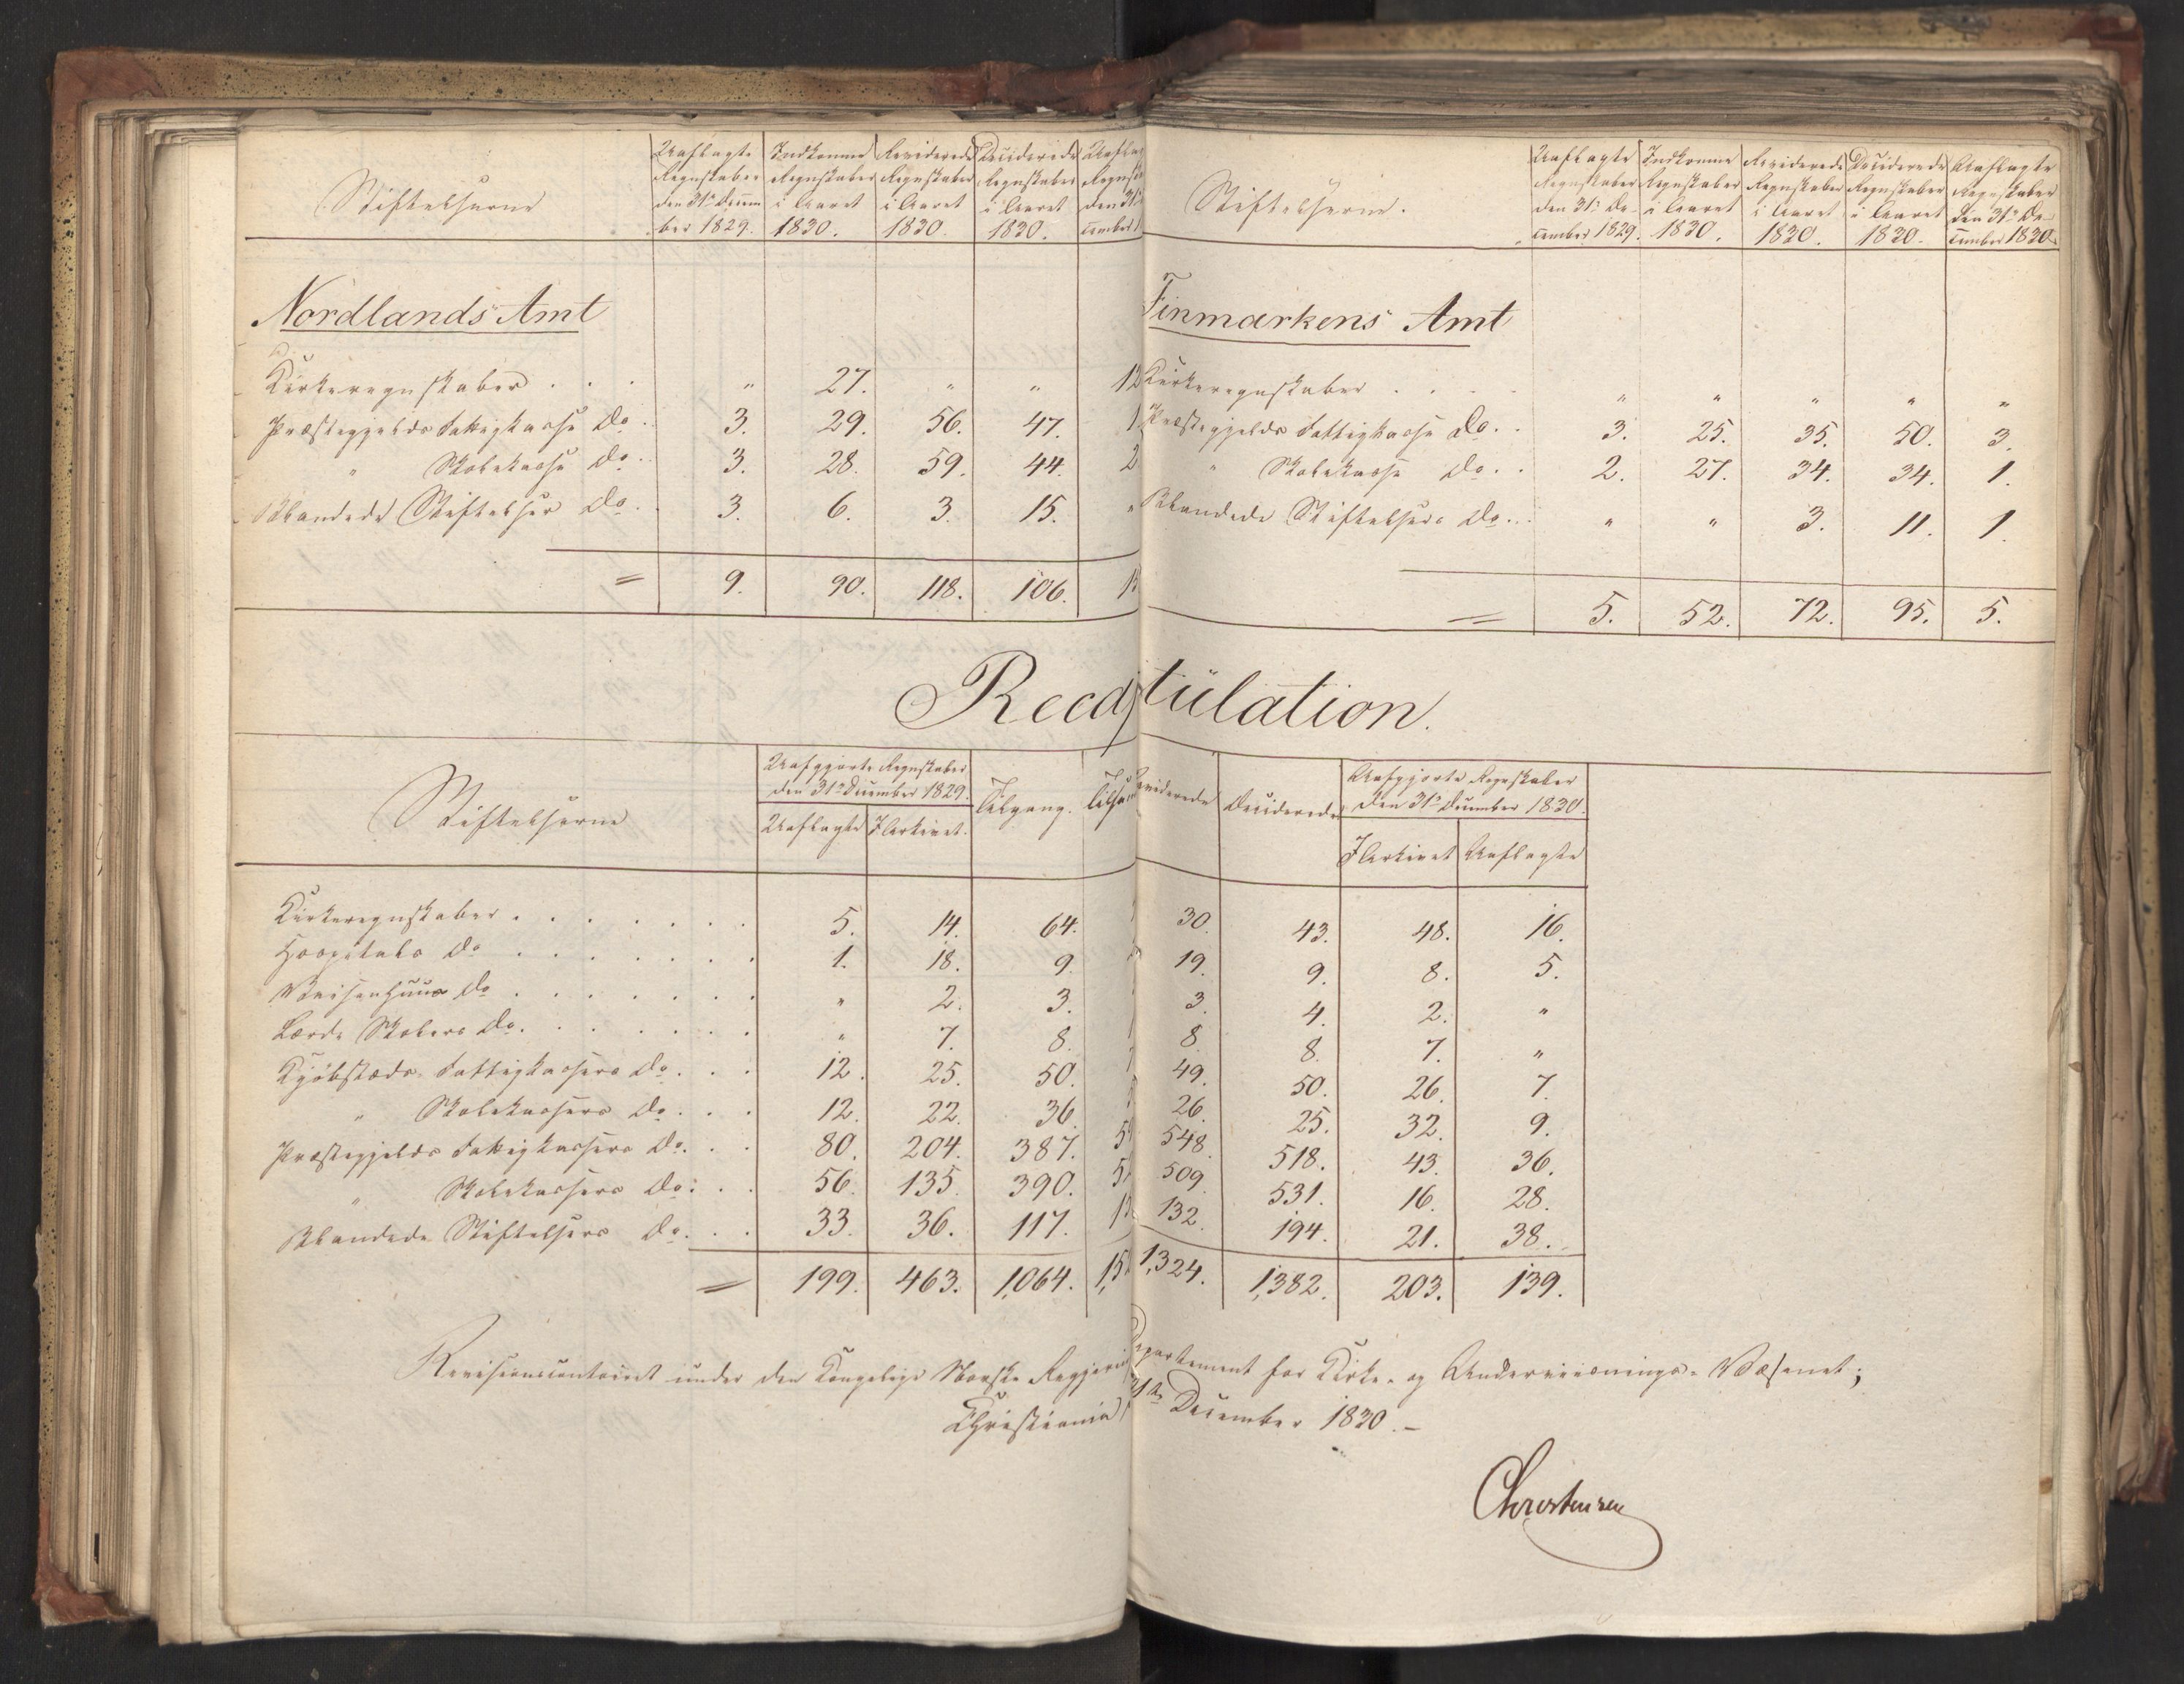 Stiftelserne | Uaflagte Regnskaber den 31te Decem-ber 1829. | Indkomne Regnskaber i Aaret 1830. | Reviderede Regnskaber i Aaret 1830. | Deciderede Regnskaber i Aaret 1830. | Uafla Regnsk den 31 cember 1
Nordlands Amt
Kirkeregnskaber . . . " 27. " " 12
Præstegjelds Fattigkasse Do . . 3. 29. 56. 47. 1
" Skolekasse Do . . 3. 28. 59. 44. 2
Blandede Stiftelser Do . 3. 6. 3. 15. "
= 9. 90. 118. 106. 15
Stiftelserne. | Uaflagte Regnskaber den 31te De-cember 1829. | Indkomne Regnskaber i Aaret 1830. | Reviderede Regnskaber i Aaret 1830. | Deciderede Regnskaber i Aaret 1830. | Uaflagte Regnskaber den 31te De-cember 1830.
Finmarkens Amt
Kirkeregnskaber . . . . " " " " "
Præstegjelds Fattigkasse Do . . 3. 25. 35. 50. 3.
" Skolekasse Do . . 2. 27. 34. 34. 1.
Blandede Stiftelsers Do . . " " 3. 11. 1.
= 5. 52. 72. 95. 5.
Recapitulation.
Stiftelserne | Uafgjorte Regnskaber den 31te December 1829. | Tilgang. | Tilsam | Reviderede | Deciderede | Uafgjorte Regnskaber den 31te December 1830.
Uaflagte | I Arkivet. | I Arkivet | Uaflagte
Kirkeregnskaber . . . . . . . 5. 14. 64. 30. 43. 48. 16.
Hospitals Do . . . . . . . 1. 18. 9. 19. 9. 8. 5.
Waisenhuus Do . . . . . . . " 2. 3. 3. 4. 2. "
Lærde Skolers Do . . . . . . " 7. 8. 8. 8. 7. "
Kjøbstæds Fattigkassers Do . . . 12. 25. 50. 49. 50. 26. 7.
" Skolekassers Do . . . 12. 22. 36. 26. 25. 32. 9.
Præstegjelds Fattigkassers Do . . . 80. 204. 387. 5 548. 518. 43. 36.
" Skolekassers Do . . . 56. 135. 390. 5 509. 531. 16. 28.
Blandede Stiftelsers Do . . . 33. 36. 117. 1 132. 194. 21. 38.
= 199. 463. 1,064. 1,5 1,324. 1,382. 203. 139.
Revisionscontoiret under den Kongelige Norske Regjerin Departement for Kirke- og Underviisnings-Væsenet;
Christiania 31te December 1830.-
Christensen